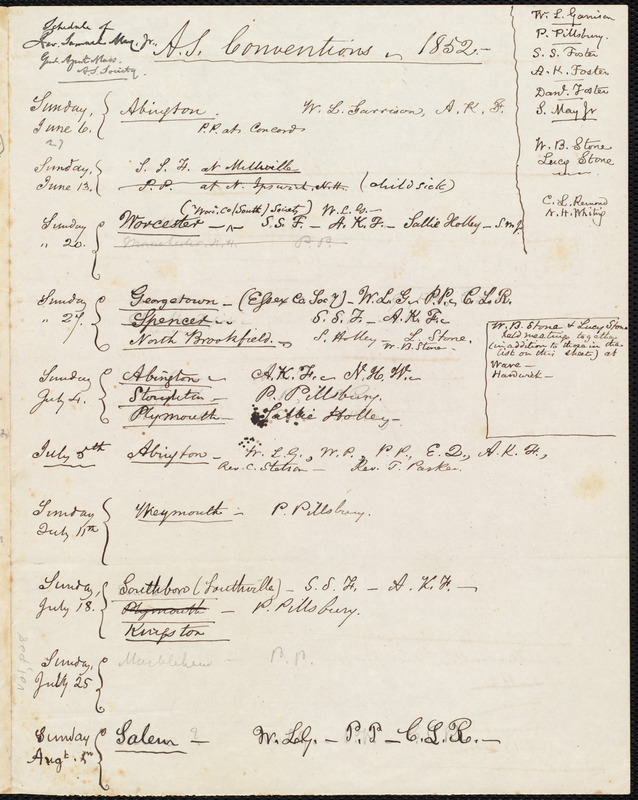 Schedule of
Rev. Samuel May, Jr.
Genl Agent Mass.
A.S. Society
A.S. Conventions, 1852.
W. L. Garrison
P. Pillsbury.
S. S. Foster
A. K. Foster
Danl. Foster
S. May Jr
W. B. Stone
Lucy Stone
C. L. Remond
N. H. Whiting
Sunday, June 6. Abington. W. L. Garrison, A. K. F.
P.P. at Concord
27
Sunday, June 13. S. S. F. at Millville
P.P. at N. Ipswich, N.H. (child sick)
(Worc. Co (South) Society) W.L.G. —
Sunday " 20. Worcester — S.S.F. — A.K.F. — Sallie Holley — S.M.J.
Manchester, N.H. P.P.
Sunday " 27. Georgetown — (Essex Co Socy) — W.L.G., P.P., C.L.R.
Spencer S. S. F. — A. K. F.
North Brookfield. S. Holley — L. Stone.
W. B. Stone —
W. B. Stone & Lucy Stone
held meetings together
(in addition to those in the
list on this sheet) at
Ware —
Hardwick —
Sunday July 4. Abington — A.K.F. N.H.W.
Stoughton — P. Pillsbury.
Plymouth — Sallie Holley —
July 5th Abington — W.L.G., W.P., P.P., E.D., A.K.F.,
Rev. C. Stetson — Rev. T. Parker.
Sunday July 11th Weymouth — P. Pillsbury.
Sunday, July 18. Southboro (Southville) — S.S.F. — A.K.F. —
Plymouth — P. Pillsbury.
Kingston
Sunday, July 25 Marblehead — P.P.
Sunday Augt. 1st Salem ? — W.L.G. — P.P — C.L.R. —